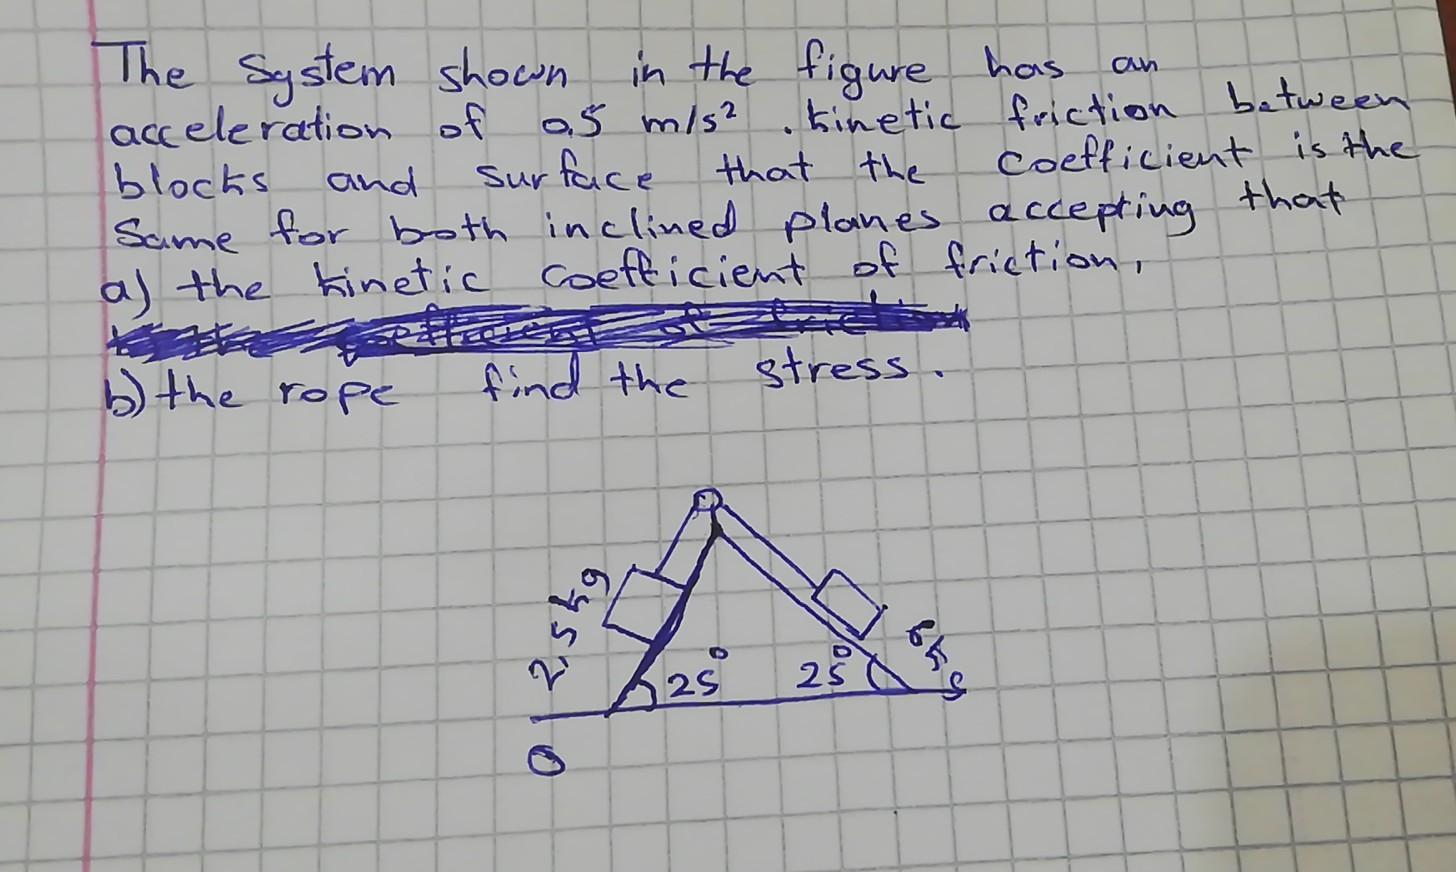 The system shown in the figure has an
acceleration of 0.5 m/s² . kinetic friction between
blocks and surface that the coefficient is the
same for both inclined planes accepting that
a) the kinetic coefficient of friction,
b) the rope find the stress.
2,5 kg
25°
25°
6 kg